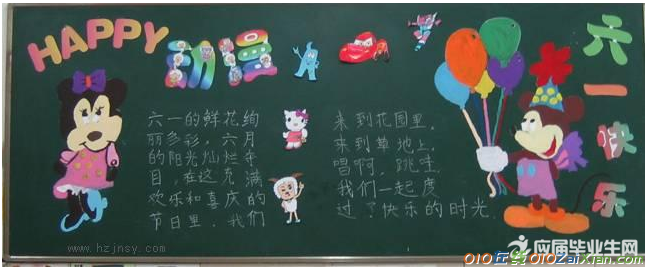 HAPPY
动漫
六一快乐
六一的鲜花绚
丽多彩，六月
的阳光灿烂夺
目，在这充满
欢乐和喜庆的
节日里，我们
来到花园里，
来到草地上，
唱啊，跳啊，
我们一起度
过了快乐的时光
www.hzjnsy.com
应届毕业生网
010在线010ZaiXian.com